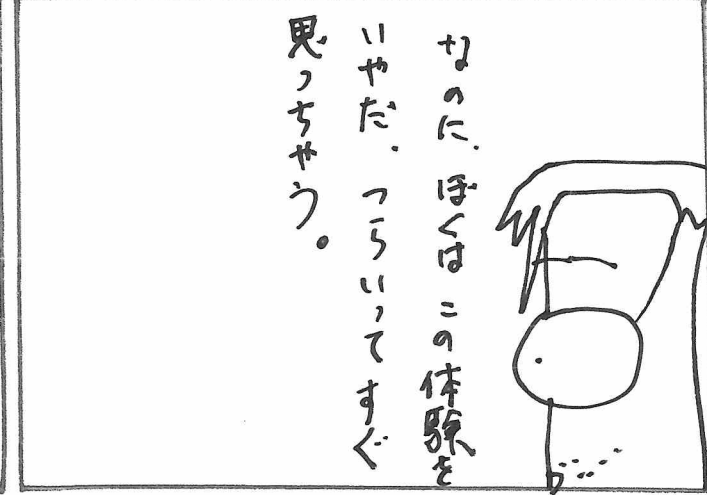 なのに、ぼくはこの体験を
いやだ、つらいってすぐ
思っちゃう。